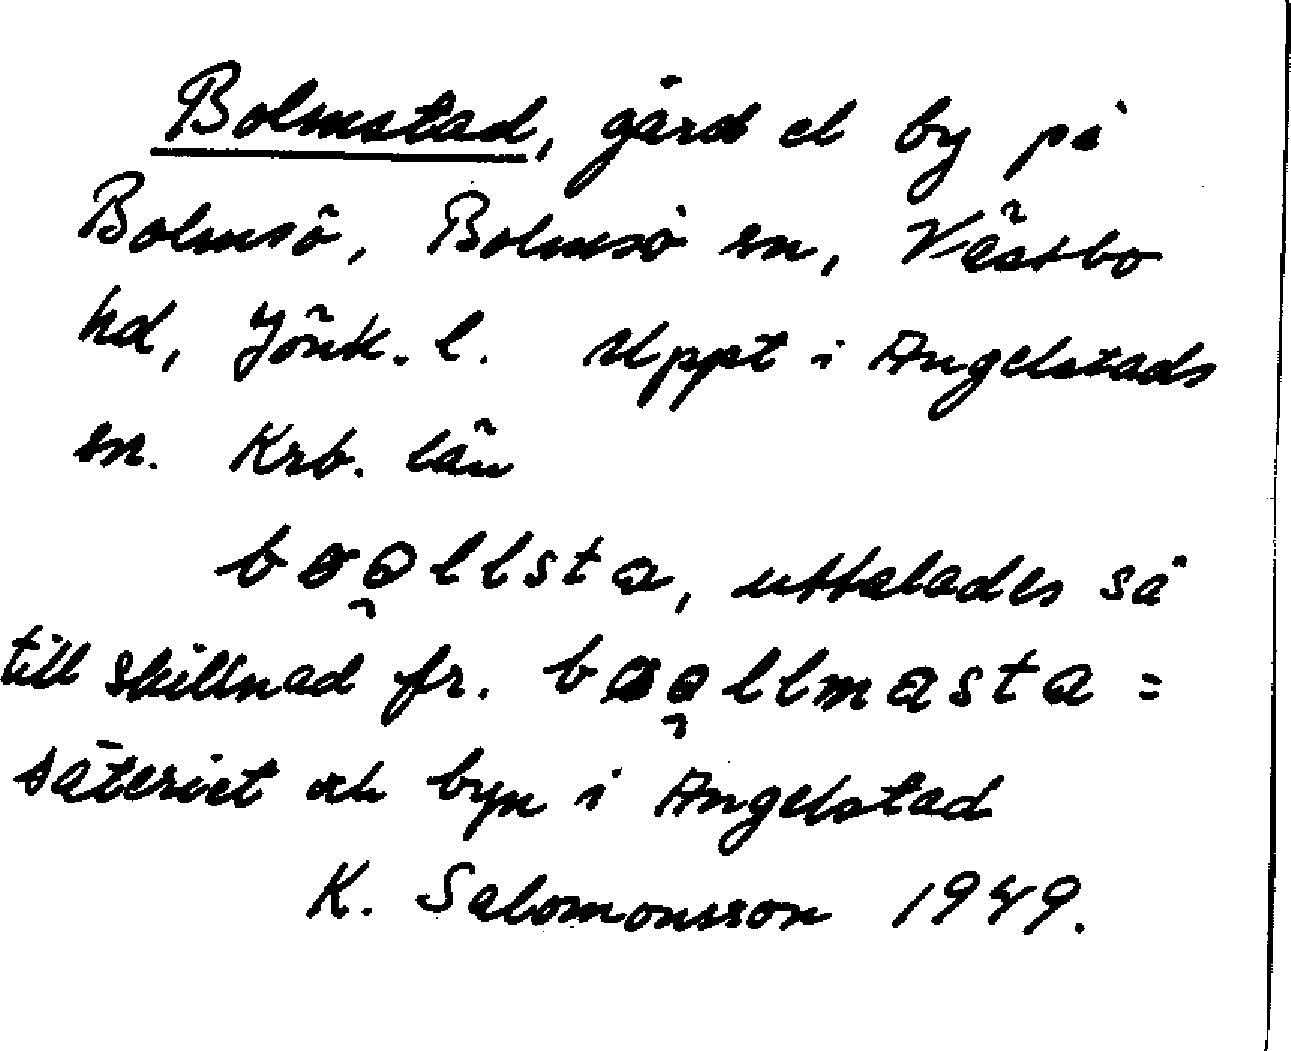 Bolmstad, gård el by på
Bolmsö, Bolmsö sn, Västbo
hd, Jönk. l. Uppt i Angelstads
sn. Krb. län
boo̯llsta, uttalades så
till skillnad fr. bɑo̯llmasta =
säteriet och byn i Angelstad
K. Salomonsson 1949.